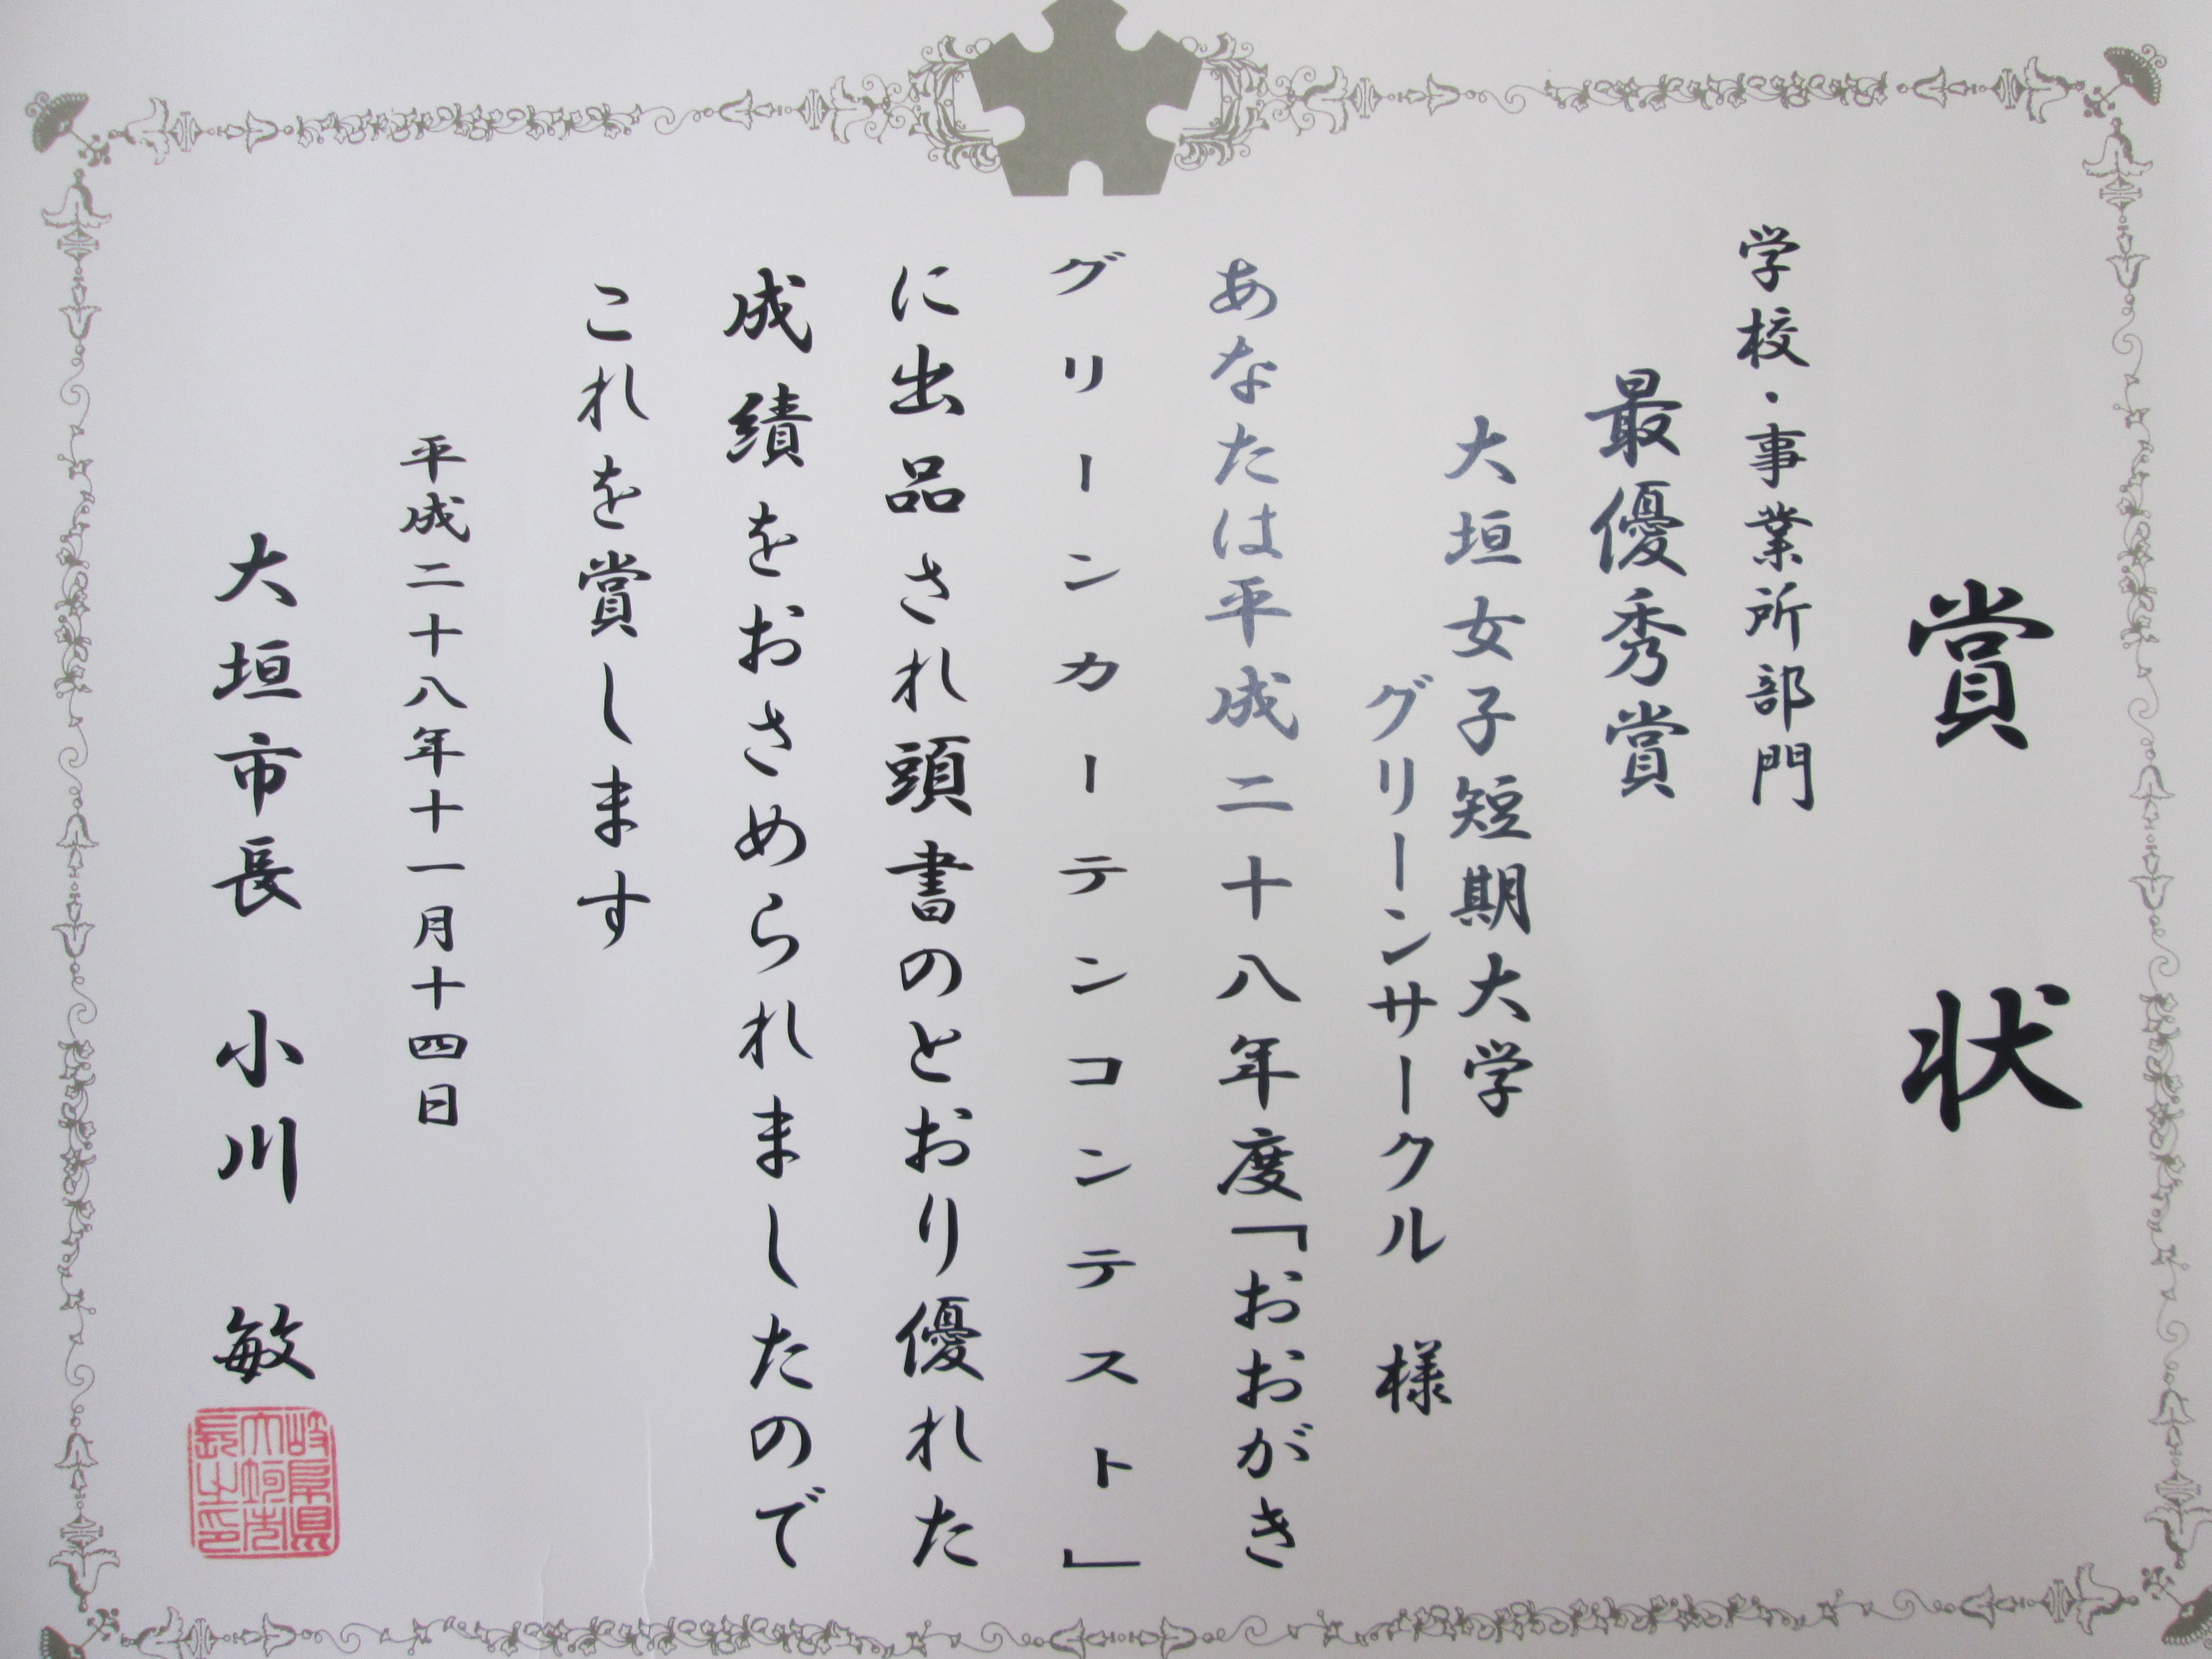 賞状
学校・事業所部門
最優秀賞
大垣女子短期大学
グリーンサークル 様
あなたは平成二十八年度「おおがき
グリーンカーテンコンテスト」
に出品され頭書のとおり優れた
成績をおさめられましたので
これを賞します
平成二十八年十一月十四日
大垣市長 小川 敏
岐阜県
大垣市
長之印